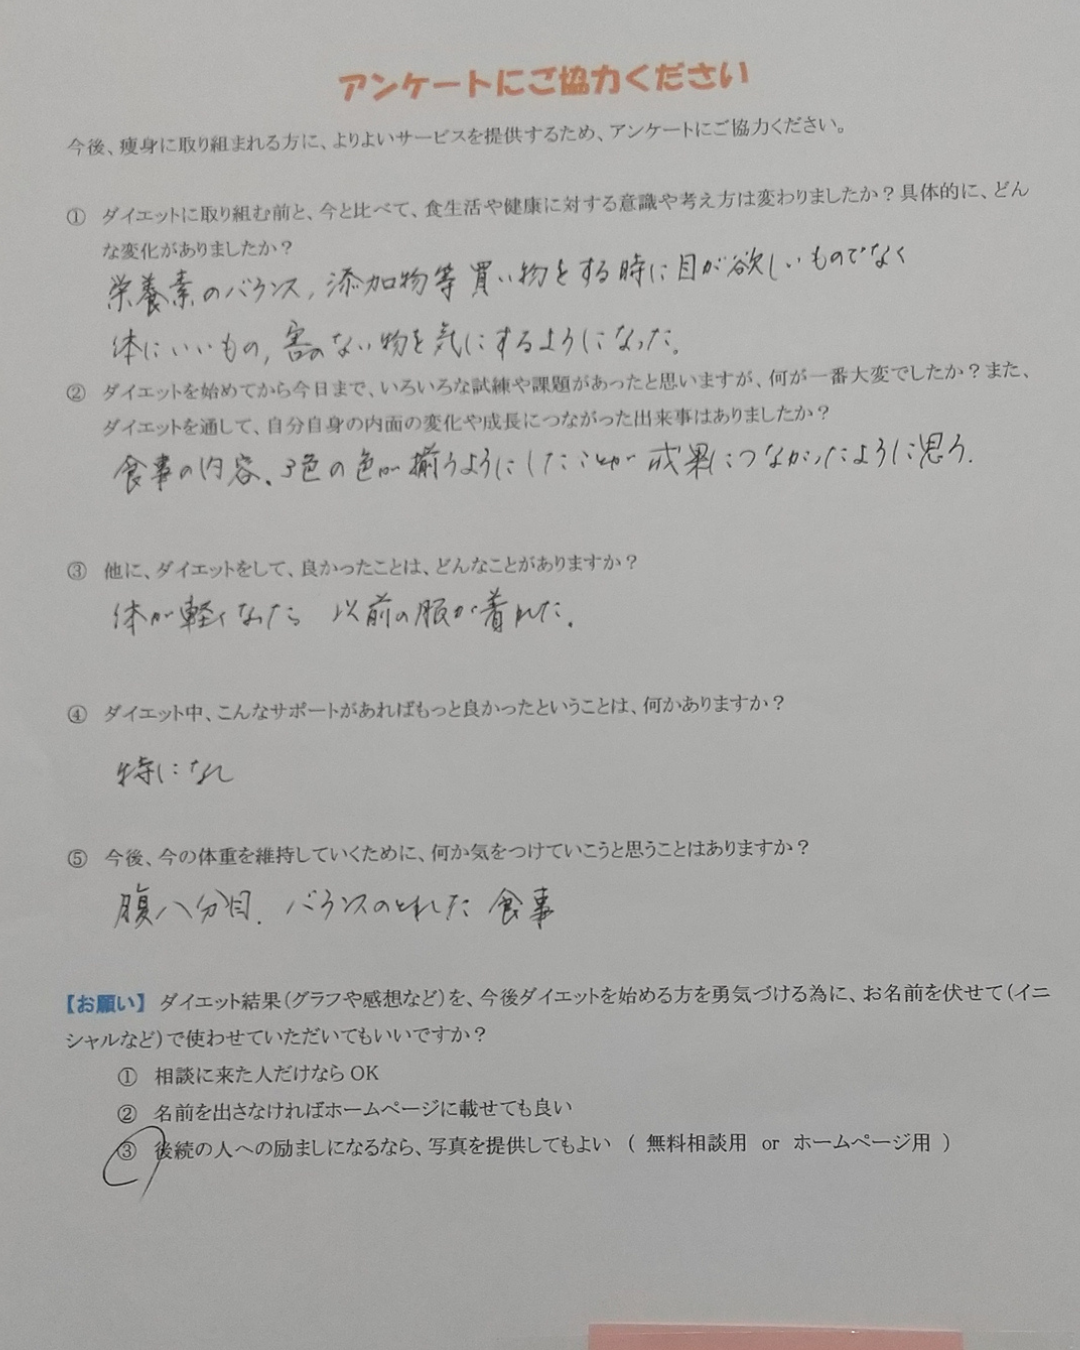 アンケートにご協力ください
今後、痩身に取り組まれる方に、よりよいサービスを提供するため、アンケートにご協力ください。
① ダイエットに取り組む前と、今と比べて、食生活や健康に対する意識や考え方は変わりましたか？具体的に、どん
な変化がありましたか？
栄養素のバランス，添加物等 買い物をする時に目が欲しいものでなく
体にいいもの，害のない物を気にするようになった。
② ダイエットを始めてから今日まで、いろいろな試練や課題があったと思いますが、何が一番大変でしたか？また、
ダイエットを通して、自分自身の内面の変化や成長につながった出来事はありましたか？
食事の内容、3色の色が揃うようにしたことが 成果につながったように思う.
③ 他に、ダイエットをして、良かったことは、どんなことがありますか？
体が軽くなった 以前の服が着れた.
④ ダイエット中、こんなサポートがあればもっと良かったということは、何かありますか？
特になし
⑤ 今後、今の体重を維持していくために、何か気をつけていこうと思うことはありますか？
腹八分目. バランスのとれた 食事
【お願い】 ダイエット結果（グラフや感想など）を、今後ダイエットを始める方を勇気づける為に、お名前を伏せて（イニ
シャルなど）で使わせていただいてもいいですか？
① 相談に来た人だけなら OK
② 名前を出さなければホームページに載せても良い
③ 後続の人への励ましになるなら、写真を提供してもよい （ 無料相談用 or ホームページ用 ）